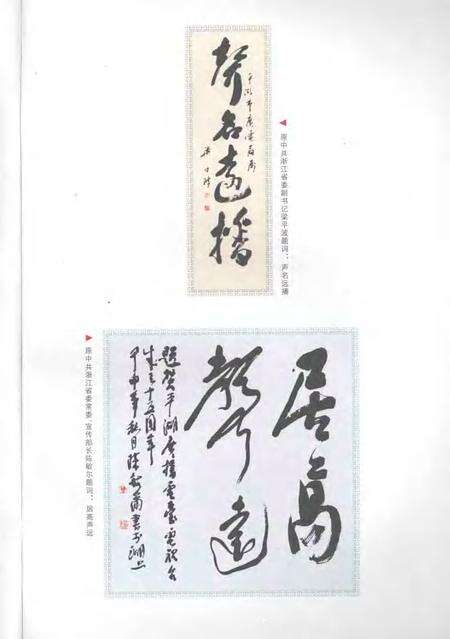 平湖市广电局属
聲名远播
梁平波
原中共浙江省委副书记梁平波题词：声名远播
居高
聲远
题贺平湖广播电台电视台
成立十五周年
甲申年秋月陈敏尔书于湖上
原中共浙江省委常委、宣传部长陈敏尔题词：居高声远